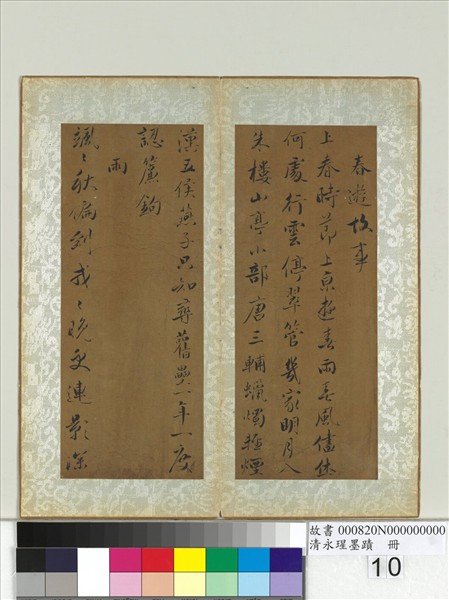 春遊故事
上春時節上京遊春雨春風儘
何處行雲停翠管幾家明月入
朱樓山亭小部唐三輔蠟燭輕煙
漢五侯燕子只知尋舊壘一年一度
認簾鉤
雨
颯颯秋偏到戎戎晚更連影深
故書 000820N000000000
清永瑆墨蹟 冊
10